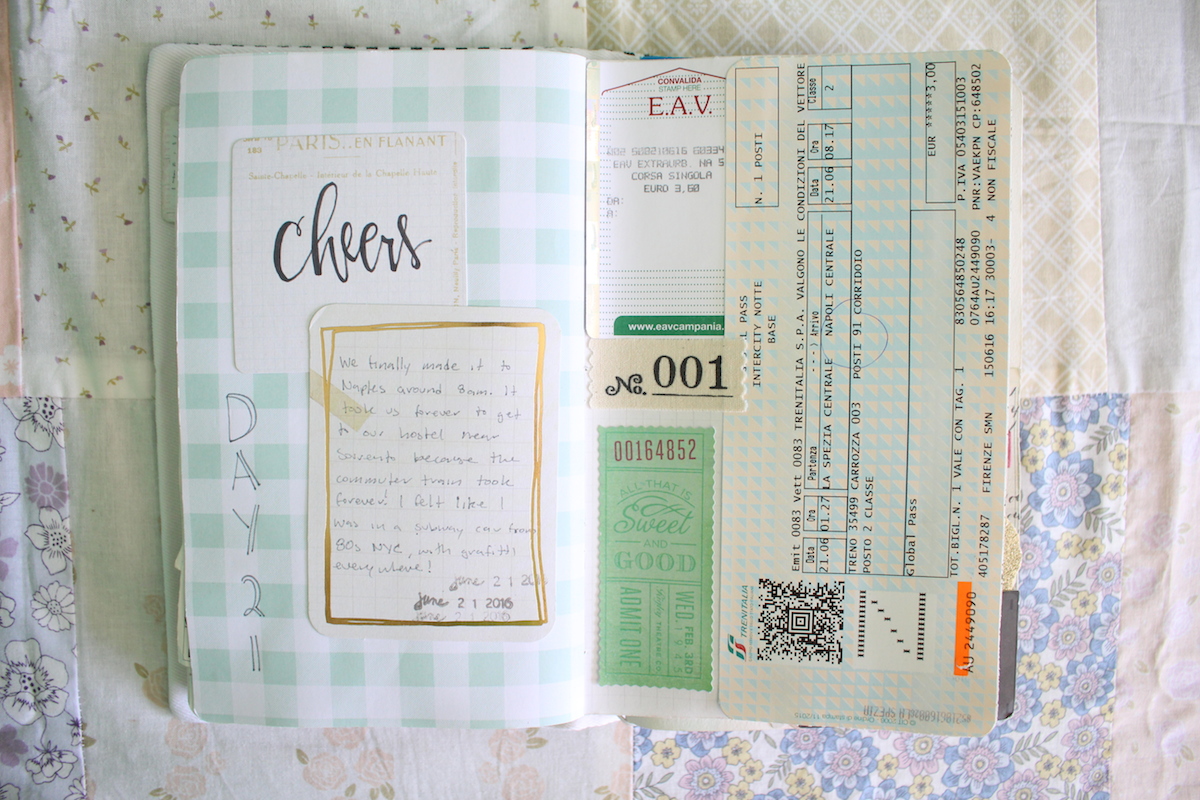 180
PARIS..EN FLANANT
Sainte-Chapelle - Interieur de la Chapelle Haute
cheers
We finally made it to
Naples around 8am. It
took us forever to get
to our hostel near
Sorrento because the
commuter train took
forever! I felt like I
was in a subway car from
80s NYC, with grafitti
everywhere!
june 21 201
june 21 2016
june 21 2016
DAY 21
CONVALIDA
STAMP HERE
E.A.V.
EAV EXTRAURB. NA 5
CORSA SINGOLA
EURO 3,60
DA:
A:
www.eavcampania.
No. 001
00164852
ALL THAT IS
Sweet
AND
GOOD
ADMIT ONE
THEATRE CO.
WED. FEB 3RD
N. 1 POSTI
PASS
INTERCITY NOTTE
BASE
Emit 0083 Vett 0083 TRENITALIA S.P.A. VALGONO LE CONDIZIONI DEL VETTORE
Data Ora Partenza ---> Arrivo Data Ora Classe
21.06 01.27 LA SPEZIA CENTRALE NAPOLI CENTRALE 21.06 08.17 2
TRENO 35499 CARROZZA 003 POSTI 91 CORRIDOIO
POSTO 2 CLASSE
Global Pass
EUR *****3,00
TOT.BIGL.N. 1 VALE CON TAG. 1 830564850248 P.IVA 05403151003
0764AU2449090 PNR:VAEKPN CP:648502
405178287 FIRENZE SMN 150616 16:17 30003- 4 NON FISCALE
TRENITALIA
AU 2449090